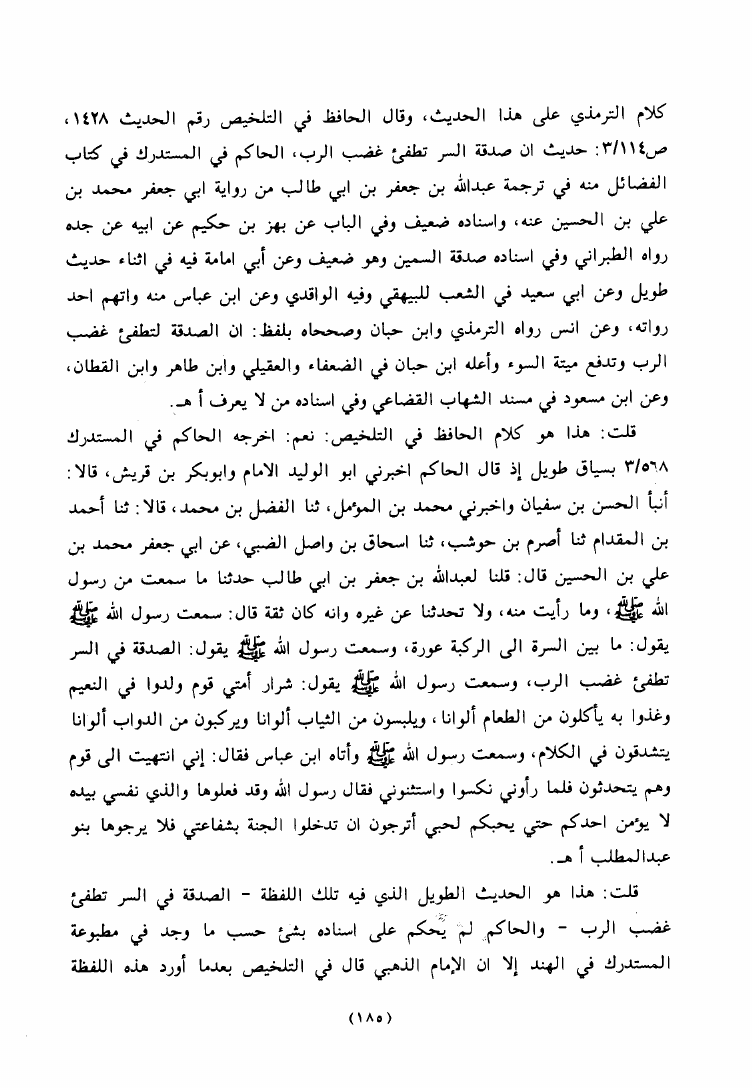 كلام الترمذي على هذا الحديث، وقال الحافظ في التلخيص رقم الحديث ١٤٢٨،
ص٣/١١٤: حديث ان صدقة السر تطفئ غضب الرب، الحاكم في المستدرك في كتاب
الفضائل منه في ترجمة عبدالله بن جعفر بن ابي طالب من رواية ابي جعفر محمد بن
علي بن الحسين عنه، واسناده ضعيف وفي الباب عن بهز بن حكيم عن ابيه عن جده
رواه الطبراني وفي اسناده صدقة السمين وهو ضعيف وعن أبي امامة فيه في اثناء حديث
طويل وعن ابي سعيد في الشعب للبيهقي وفيه الواقدي وعن ابن عباس منه واتهم احد
رواته، وعن انس رواه الترمذي وابن حبان وصححاه بلفظ: ان الصدقة لتطفئ غضب
الرب وتدفع ميتة السوء وأعله ابن حبان في الضعفاء والعقيلي وابن طاهر وابن القطان،
وعن ابن مسعود في مسند الشهاب القضاعي وفي اسناده من لا يعرف أ هـ.
قلت: هذا هو كلام الحافظ في التلخيص: نعم: اخرجه الحاكم في المستدرك
٣/٥٦٨ بسياق طويل إذ قال الحاكم اخبرني ابو الوليد الامام وابوبكر بن قريش، قالا:
أنبأ الحسن بن سفيان واخبرني محمد بن المؤمل، ثنا الفضل بن محمد، قالا: ثنا أحمد
بن المقدام ثنا أصرم بن حوشب، ثنا اسحاق بن واصل الضبي، عن ابي جعفر محمد بن
علي بن الحسين قال: قلنا لعبدالله بن جعفر بن ابي طالب حدثنا ما سمعت من رسول
الله ﷺ، وما رأيت منه، ولا تحدثنا عن غيره وانه كان ثقة قال: سمعت رسول الله ﷺ
يقول: ما بين السرة الى الركبة عورة، وسمعت رسول الله ﷺ يقول: الصدقة في السر
تطفئ غضب الرب، وسمعت رسول الله ﷺ يقول: شرار أمتي قوم ولدوا في النعيم
وغذوا به يأكلون من الطعام ألوانا، ويلبسون من الثياب ألوانا ويركبون من الدواب ألوانا
يتشدقون في الكلام، وسمعت رسول الله ﷺ وأتاه ابن عباس فقال: إني انتهيت الى قوم
وهم يتحدثون فلما رأوني نكسوا واستثنوني فقال رسول الله وقد فعلوها والذي نفسي بيده
لا يؤمن احدكم حتي يحبكم لحبي أترجون ان تدخلوا الجنة بشفاعتي فلا يرجوها بنو
عبدالمطلب أ هـ.
قلت: هذا هو الحديث الطويل الذي فيه تلك اللفظة - الصدقة في السر تطفئ
غضب الرب - والحاكم لم يحكم على اسناده بشئ حسب ما وجد في مطبوعة
المستدرك في الهند إلا ان الإمام الذهبي قال في التلخيص بعدما أورد هذه اللفظة
(١٨٥)